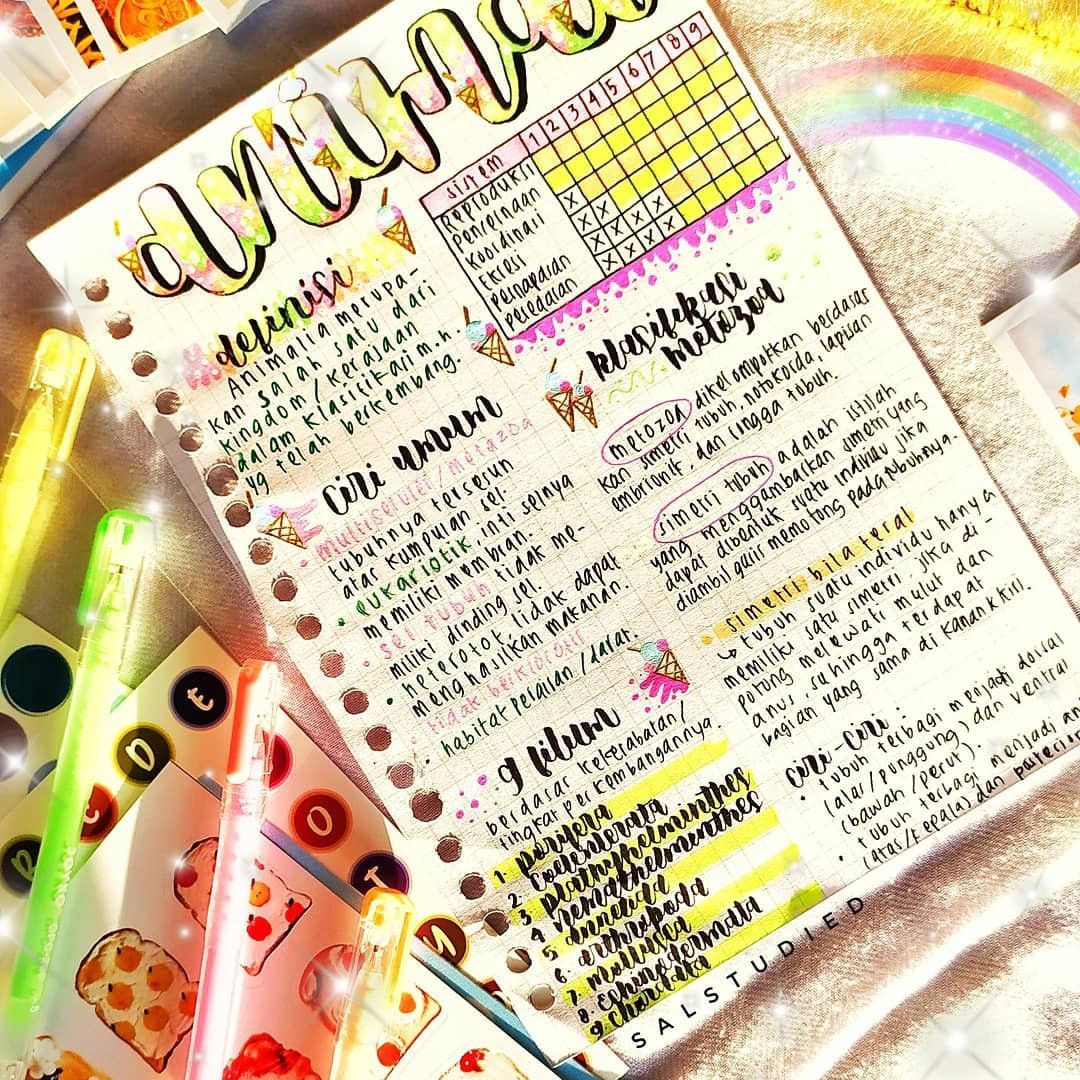 anima
definisi
Animalia merupa-
kan salah satu dari
kingdom/kerajaan
dalam klasifikasi m.h.
yg telah berkembang.
ciri umum
multiseluler/metazoa
tubuhnya tersusun
atas kumpulan sel.
• eukariotik inti selnya
memiliki membran.
• sel tubuh tidak me-
miliki dinding sel
• heterotof tidak dapat
menghasilkan makanan.
• tidak berklorofil
habitat perairan/darat.
9 filum
berdasar kekerabatan/
tingkat perkembangannya.
1. porifera
2. coelenterata
3. plathyhelminthes
4. nemathelminthes
5. annelida
6. arthropoda
7. mollusca
8. echinodermata
9. chordata
sistem 1 2 3 4 5 6 7 8 9
Reproduksi
Pencernaan
Koordinasi X
Ekresi X X
Pernapasan X X X X
Peredaran X X X X
klasifikasi
metozoa
metozoa dikelompokkan berdasar
kan simetri tubuh, notokorda, lapisan
embrionik, dan rongga tubuh.
simetri tubuh adalah istilah
yang menggambarkan simetri yang
dapat dibentuk suatu individu jika
diambil garis memotong pada tubuhnya.
• simetri bilateral
↳ tubuh suatu individu hanya
memiliki satu simetri jika di-
potong melewati mulut dan
anus, sehingga terdapat
bagian yang sama di kanan & kiri.
ciri-ciri
• tubuh terbagi menjadi dorsal
(atas/punggung) dan ventral
(bawah/perut).
• tubuh terbagi menjadi an
(atas/kepala) dan posterior
SALSTUDIED
E
D
C
B
O
T
N